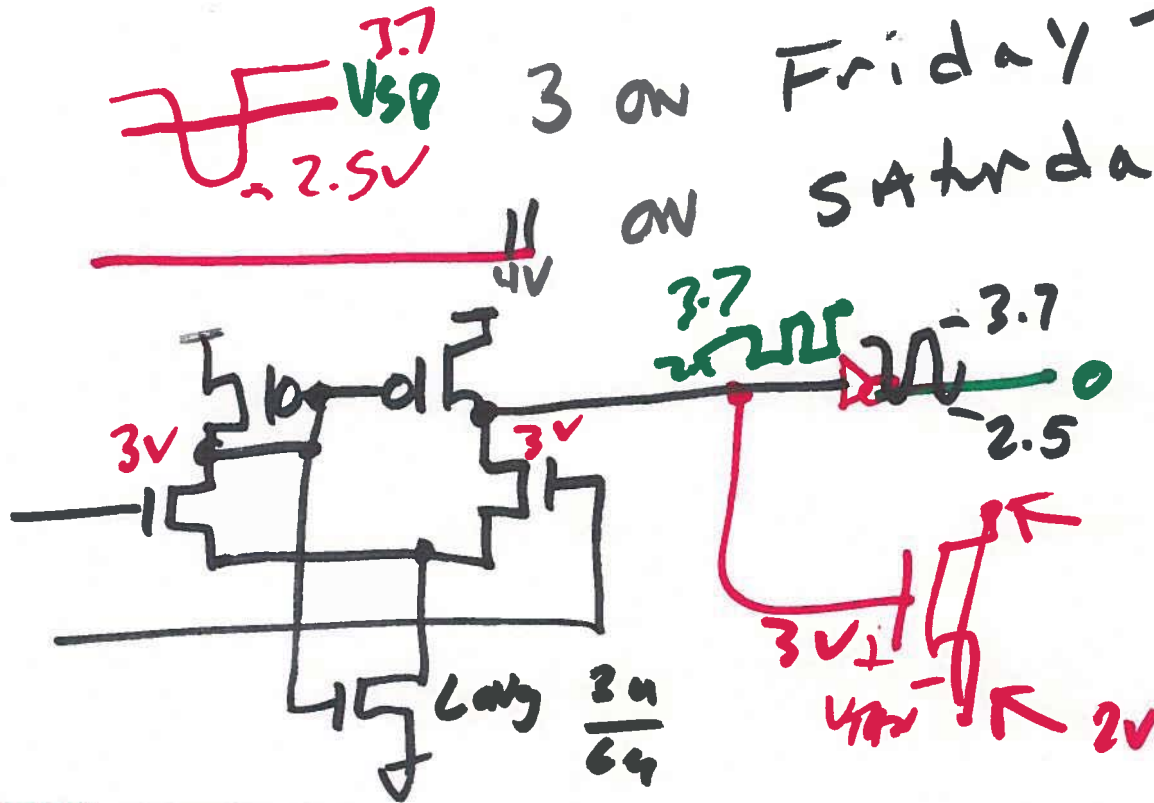 3.7
VSP
- 2.5V
3 on Friday
on Saturda
4V
3.7
3.7
2.5
3V
3V
3V
Long 3u
6u
2V